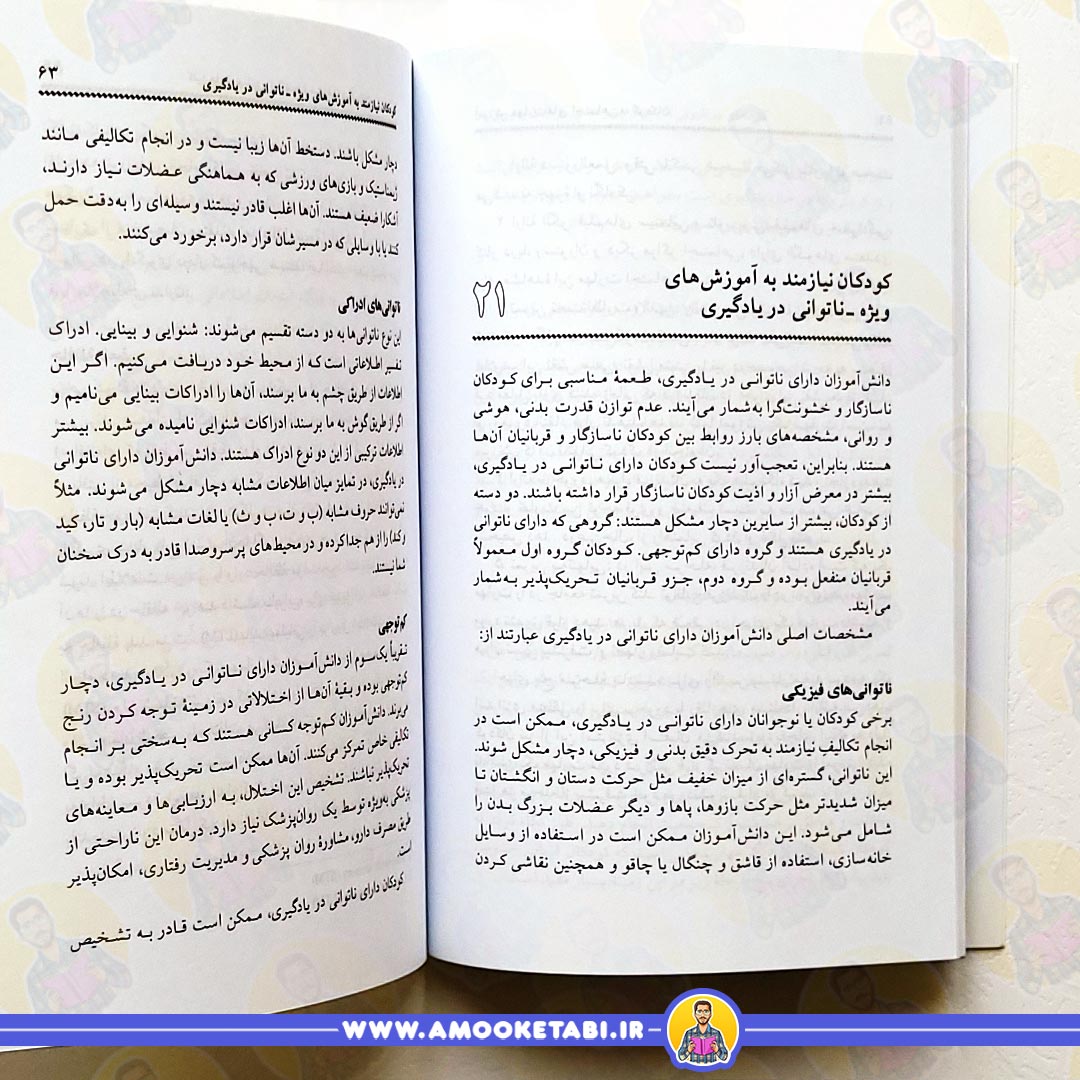 کودکان نیازمند به آموزش‌های
ویژه ـ ناتوانی در یادگیری
۲۱
دانش‌آموزان دارای ناتوانی در یادگیری، طعمهٔ مناسبی برای کودکان
ناسازگار و خشونت‌گرا به‌شمار می‌آیند. عدم توازن قدرت بدنی، هوشی
و روانی، مشخصه‌های بارز روابط بین کودکان ناسازگار و قربانیان آن‌ها
هستند. بنابراین، تعجب‌آور نیست کودکان دارای ناتوانی در یادگیری،
بیشتر در معرض آزار و اذیت کودکان ناسازگار قرار داشته باشند. دو دسته
از کودکان، بیشتر از سایرین دچار مشکل هستند: گروهی که دارای ناتوانی
در یادگیری هستند و گروه دارای کم‌توجهی. کودکان گروه اول معمولاً
قربانیان منفعل بوده و گروه دوم، جزو قربانیان تحریک‌پذیر به‌شمار
می‌آیند.
مشخصات اصلی دانش‌آموزان دارای ناتوانی در یادگیری عبارتند از:
ناتوانی‌های فیزیکی
برخی کودکان یا نوجوانان دارای ناتوانی در یادگیری، ممکن است در
انجام تکالیف نیازمند به تحرک دقیق بدنی و فیزیکی، دچار مشکل شوند.
این ناتوانی، گستره‌ای از میزان خفیف مثل حرکت دستان و انگشتان تا
میزان شدیدتر مثل حرکت بازوها، پاها و دیگر عضلات بزرگ بدن را
شامل می‌شود. این دانش‌آموزان ممکن است در استفاده از وسایل
خانه‌سازی، استفاده از قاشق و چنگال یا چاقو و همچنین نقاشی کردن
کودکان نیازمند به آموزش‌های ویژه ـ ناتوانی در یادگیری ۶۳
دچار مشکل باشند. دستخط آن‌ها زیبا نیست و در انجام تکالیفی مانند
ژیمناستیک و بازی‌های ورزشی که به هماهنگی عضلات نیاز دارند،
آشکارا ضعیف هستند. آن‌ها اغلب قادر نیستند وسیله‌ای را به‌دقت حمل
کنند یا با وسایلی که در مسیرشان قرار دارد، برخورد می‌کنند.
ناتوانی‌های ادراکی
این نوع ناتوانی‌ها به دو دسته تقسیم می‌شوند: شنوایی و بینایی. ادراک
تفسیر اطلاعاتی است که از محیط خود دریافت می‌کنیم. اگر این
اطلاعات از طریق چشم به ما برسند، آن‌ها را ادراکات بینایی می‌نامیم و
اگر از طریق گوش به ما برسند، ادراکات شنوایی نامیده می‌شوند. بیشتر
اطلاعات ترکیبی از این دو نوع ادراک هستند. دانش‌آموزان دارای ناتوانی
در یادگیری، در تمایز میان اطلاعات مشابه دچار مشکل می‌شوند. مثلاً
نمی‌توانند حروف مشابه (ب و ت، ب و ث) یا لغات مشابه (بار و تار، کید
و کد) را از هم جدا کرده و در محیط‌های پرسروصدا قادر به درک سخنان
شما نیستند.
کم‌توجهی
تقریباً یک‌سوم از دانش‌آموزان دارای ناتوانی در یادگیری، دچار
کم‌توجهی بوده و بقیهٔ آن‌ها از اختلالاتی در زمینهٔ توجه کردن رنج
می‌برند. دانش‌آموزان کم‌توجه کسانی هستند که به‌سختی بر انجام
تکالیفی خاص تمرکز می‌کنند. آن‌ها ممکن است تحریک‌پذیر بوده و یا
تحریک‌پذیر نباشند. تشخیص این اختلال، به ارزیابی‌ها و معاینه‌های
پزشکی به‌ویژه توسط یک روان‌پزشک نیاز دارد. درمان این ناراحتی از
طریق مصرف دارو، مشاورهٔ روان پزشکی و مدیریت رفتاری، امکان‌پذیر
است.
کودکان دارای ناتوانی در یادگیری، ممکن است قادر به تشخیص
WWW.AMOOKETABI.IR